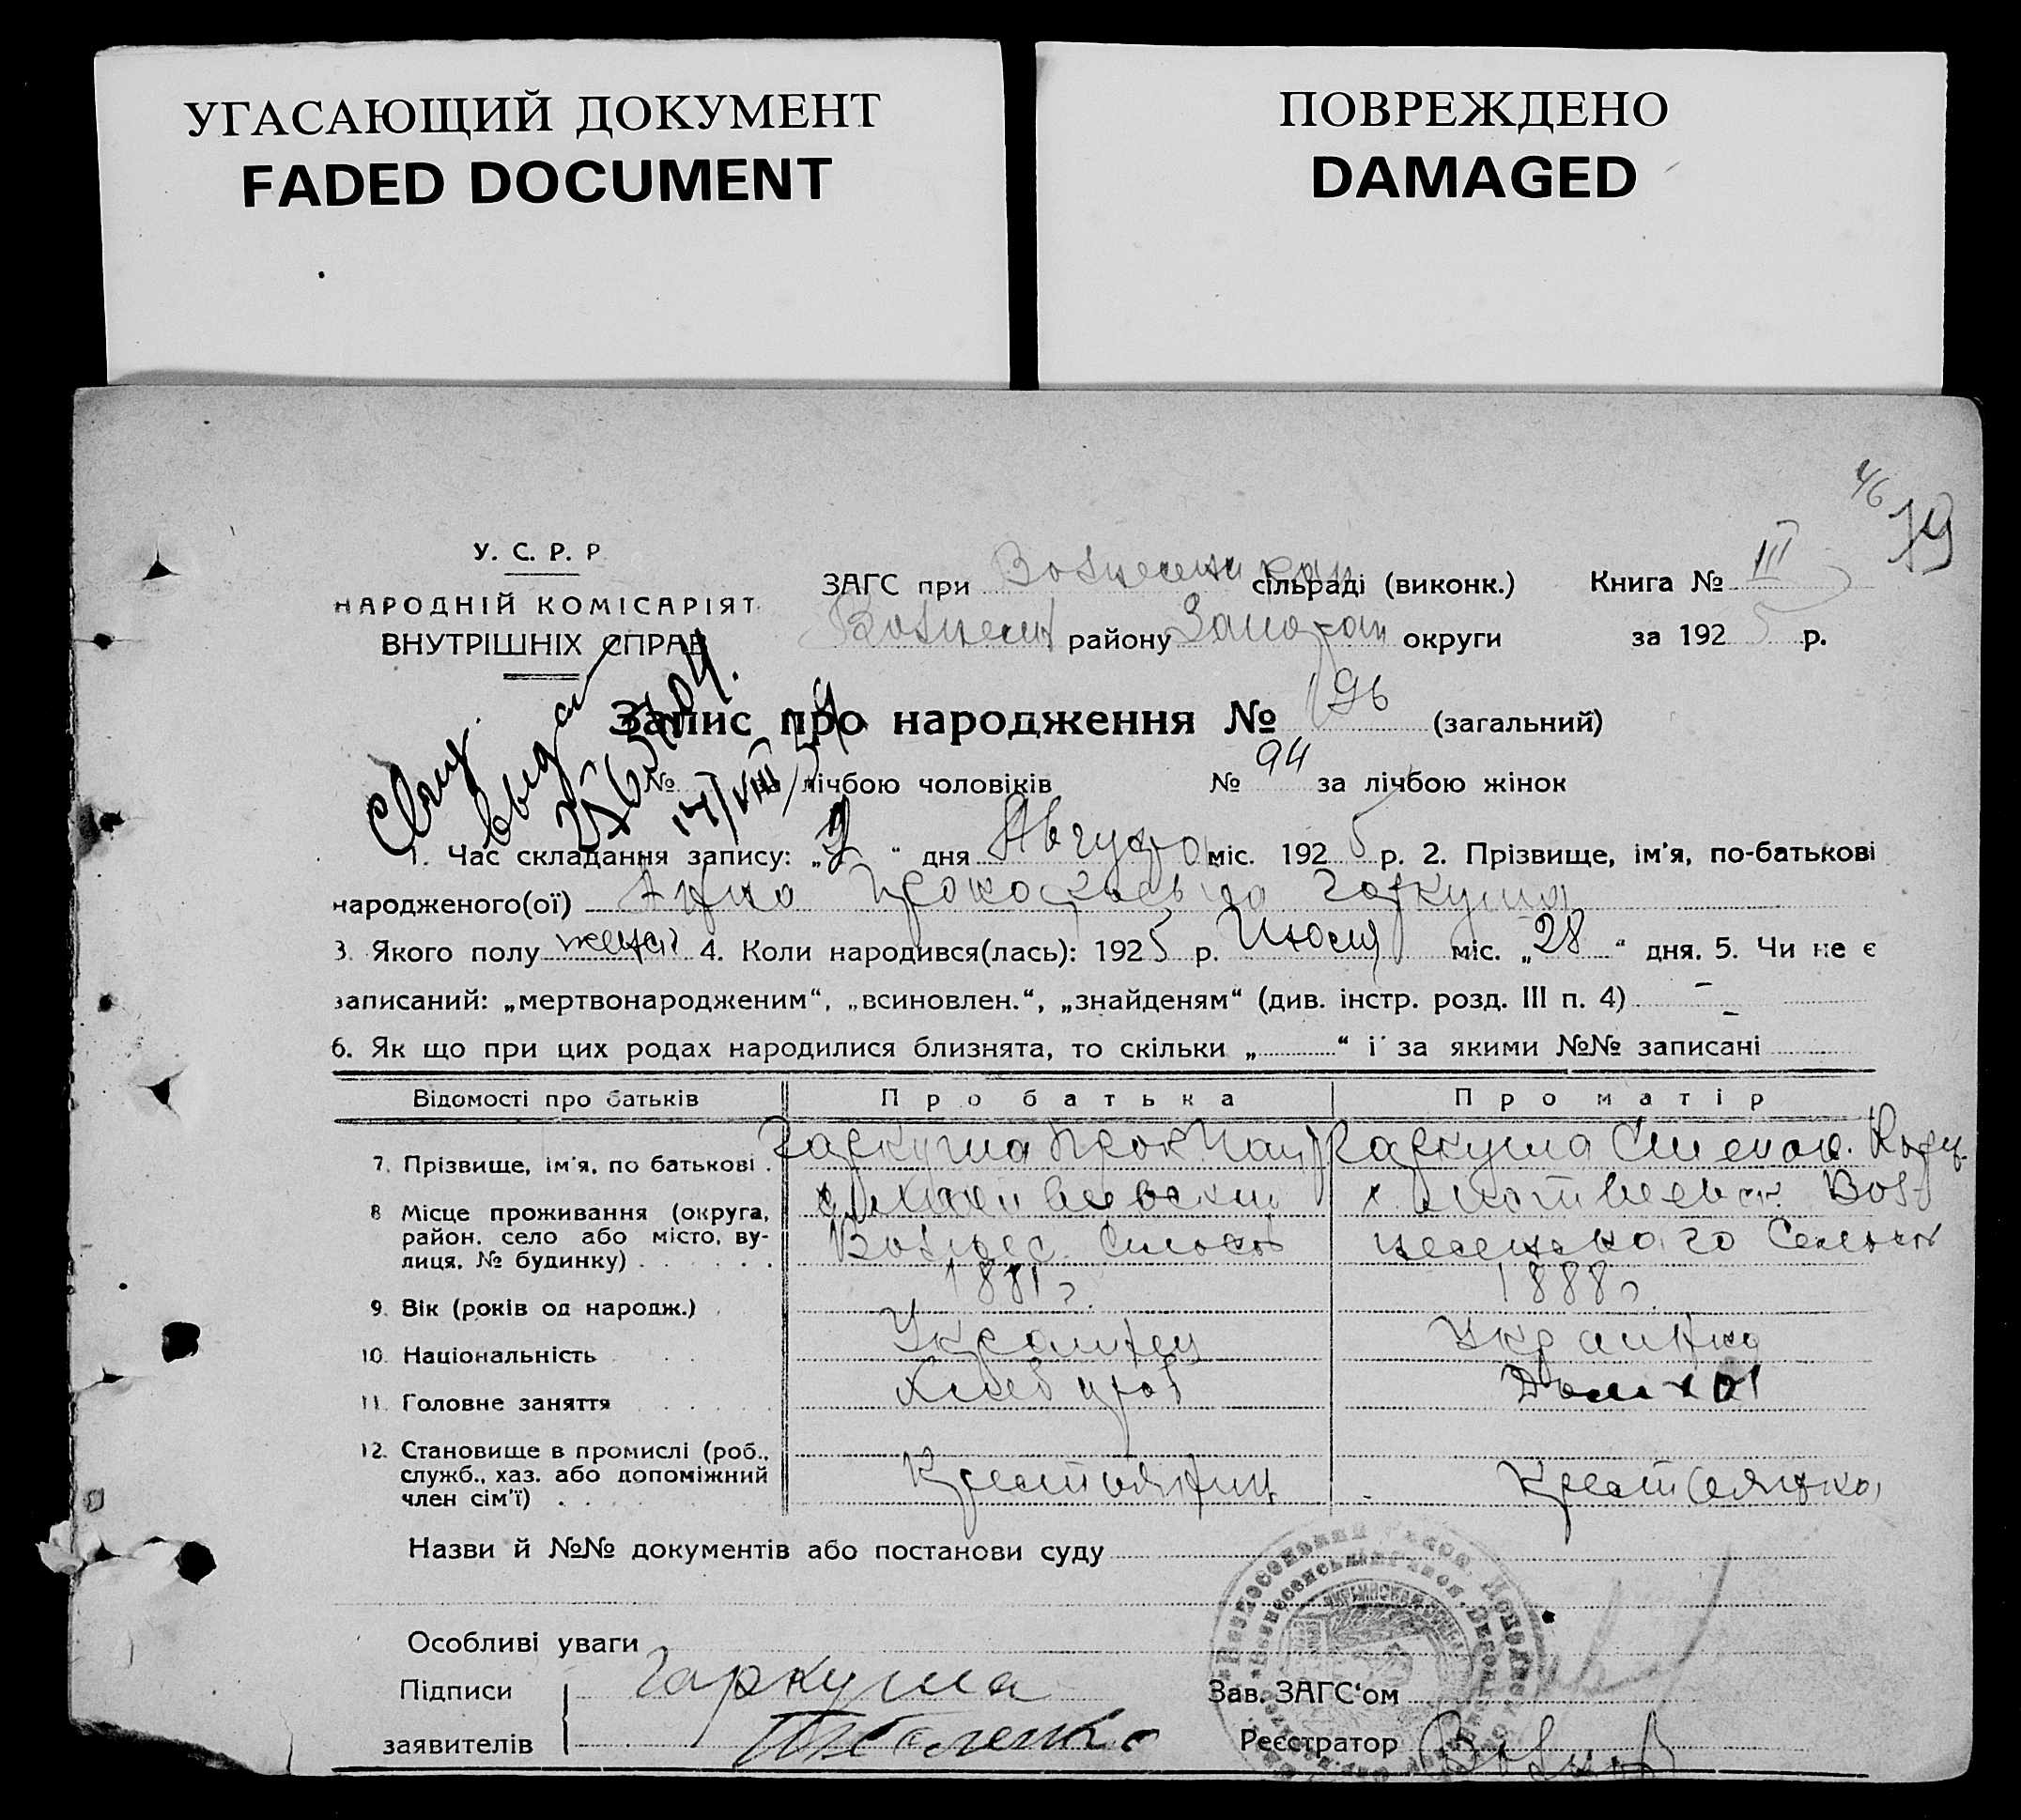 УГАСАЮЩИЙ ДОКУМЕНТ
FADED DOCUMENT
ПОВРЕЖДЕНО
DAMAGED
46
79
У. С. Р. Р.
НАРОДНІЙ КОМІСАРІЯТ
ВНУТРІШНІХ СПРАВ
ЗАГС при сільраді (виконк.) Книга № III
Вознесен району округи за 1925 р.
Запис про народження № 196 (загальний)
№ лічбою чоловіків № 94 за лічбою жінок
1. Час складання запису: „2“ дня Августа міс. 1925 р. 2. Прізвище, ім'я, по-батькові
народженого(ої) Анна Гаркуша
3. Якого полу женск 4. Коли народився(лась): 1925 р. Июля міс. „28“ дня. 5. Чи не є
записаний: „мертвонародженим“, „всиновлен.“, „знайденям“ (див. інстр. розд. III п. 4) -
6. Як що при цих родах народилися близнята, то скільки „ “ і за якими №№ записані
Відомості про батьків Про батька Про матір
7. Прізвище, ім'я, по батькові Гаркуша Прок Гаркуша Степан.
8 Місце проживання (округа, район, село або місто, вулиця, № будинку) Вознес. Сельсов Матвеевск Вознесенского Сельсов
9. Вік (років од народж.) 1881 г. 1888 г.
10. Національність Украинец Украинка
11. Головне заняття Хлебороб Домхоз
12. Становище в промислі (роб., служб., хаз. або допоміжний член сім'ї) Крестьянин Крестьянка
Назви й №№ документів або постанови суду
Особливі уваги
Підписи Гаркуша Зав. ЗАГС'ом
заявителів Реєстратор